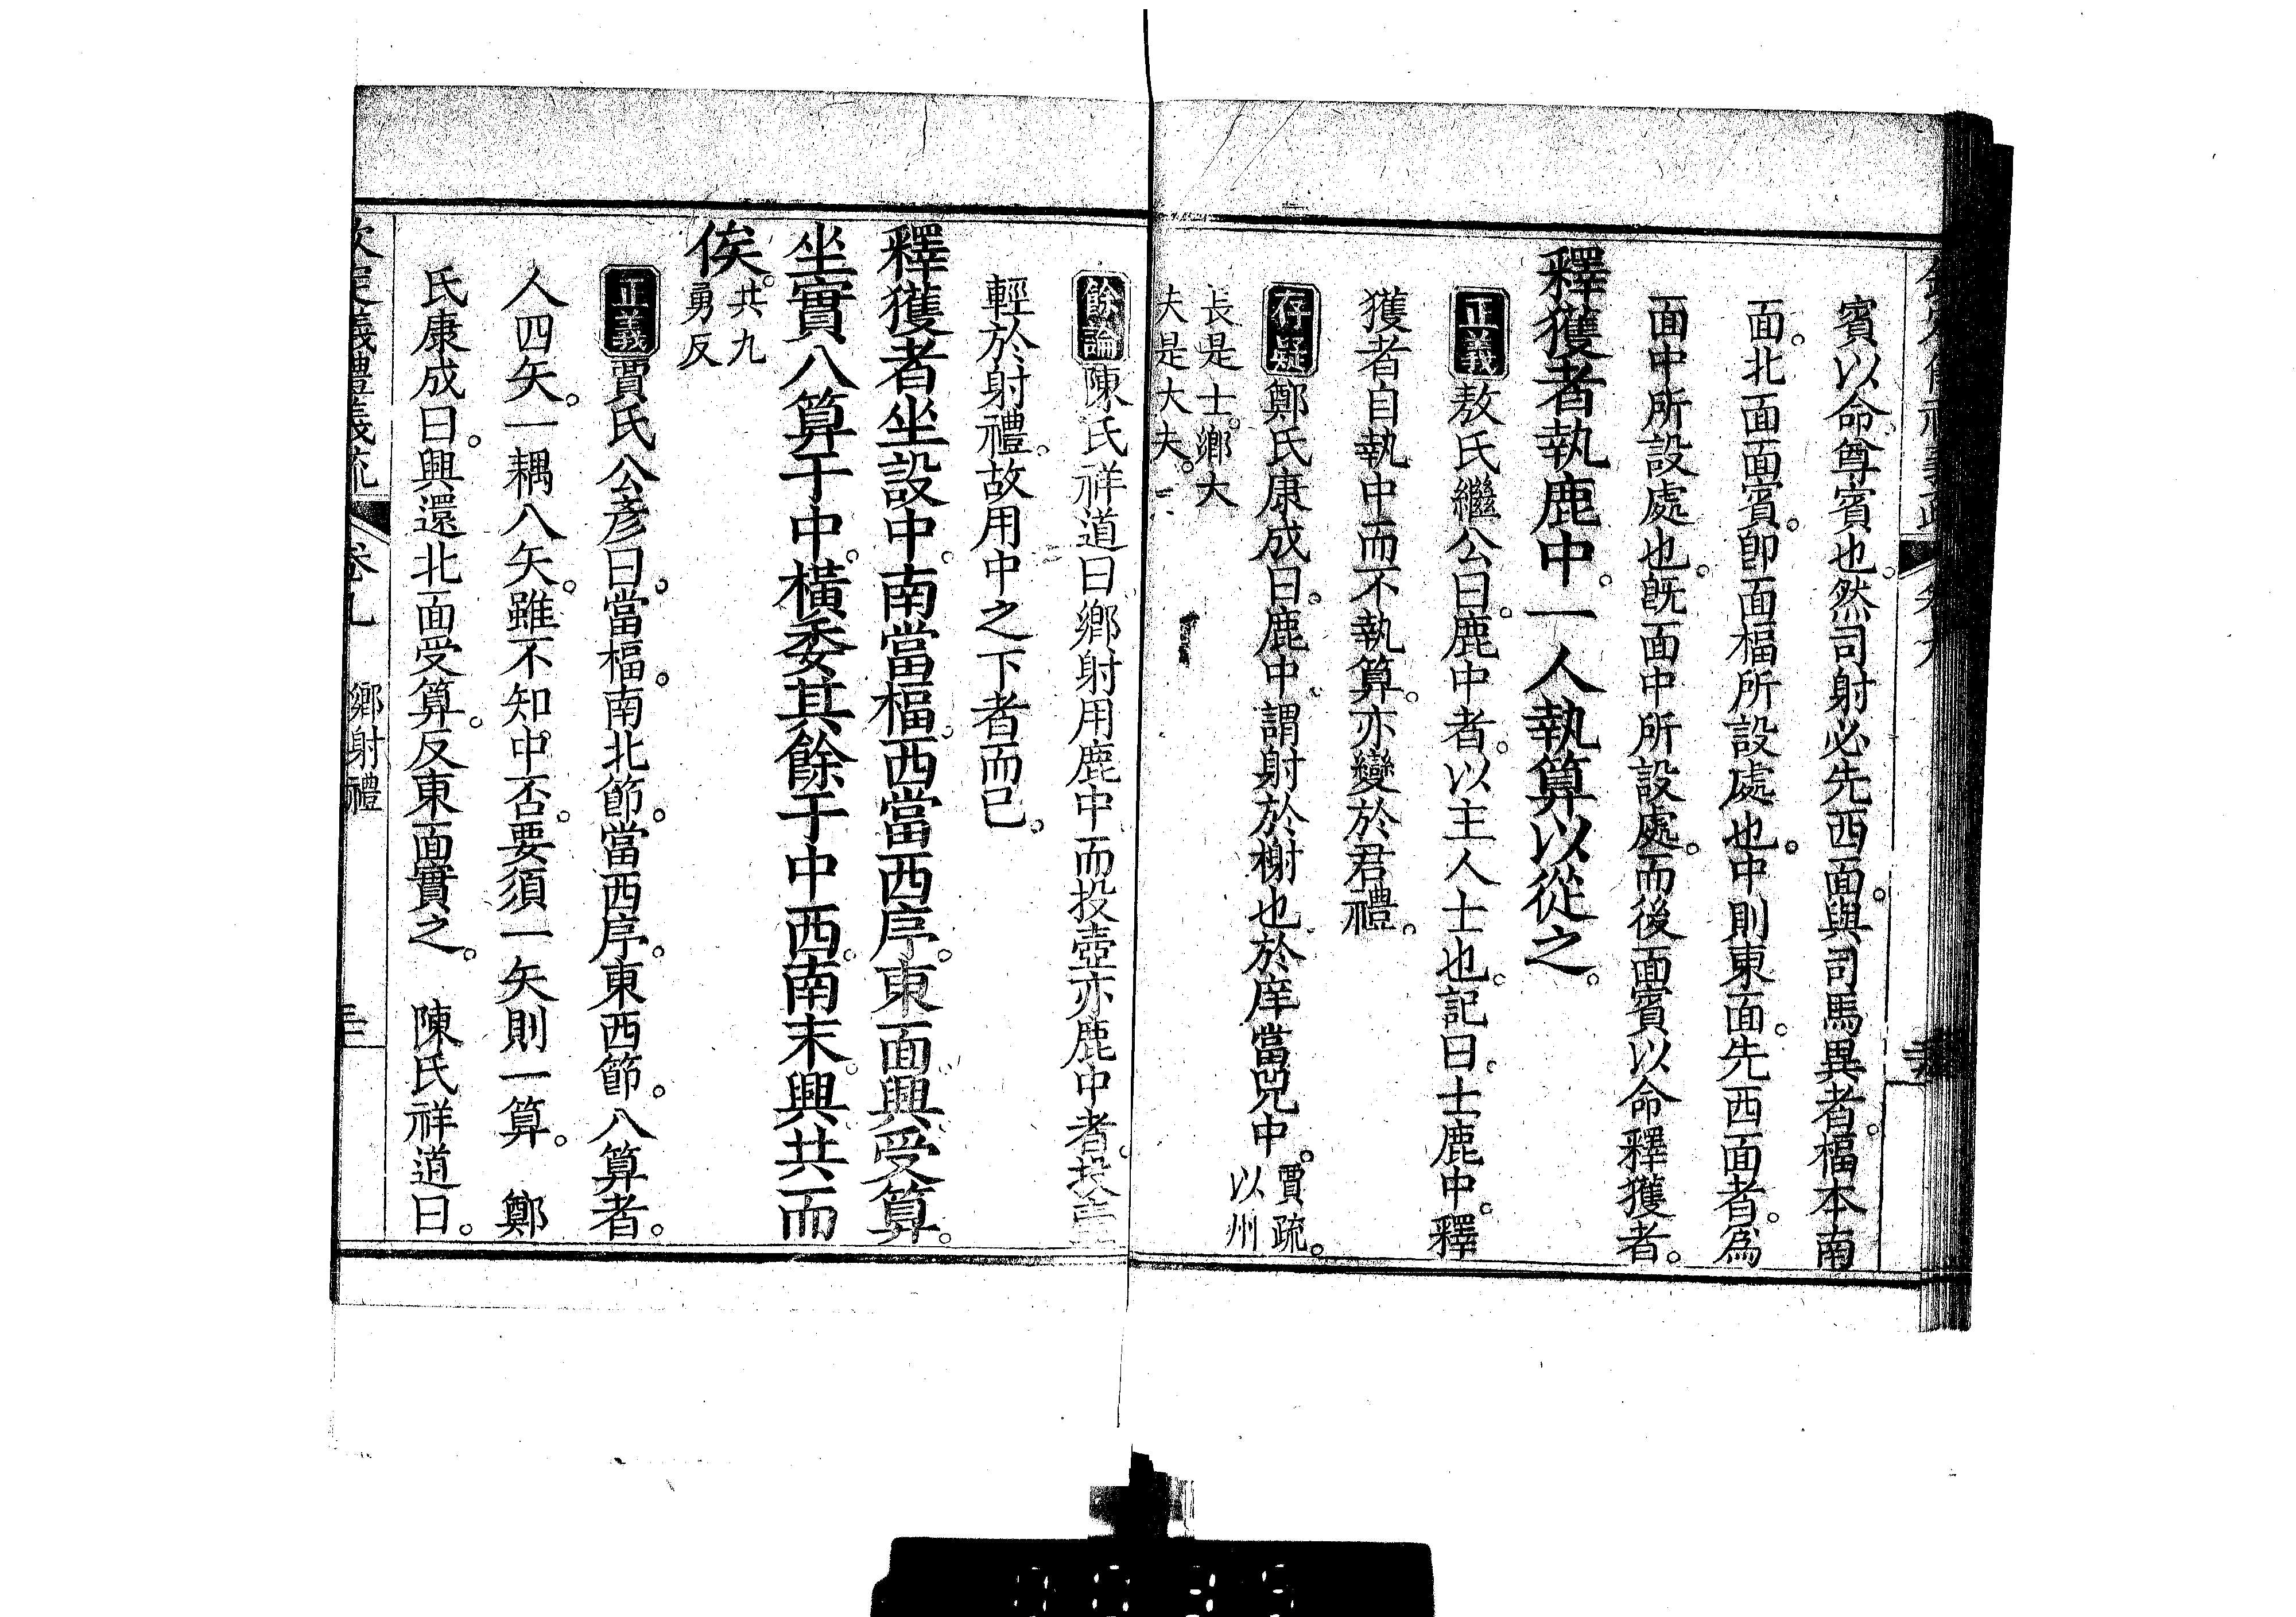 賓以命尊賓也。然司射必先西面。與司馬異者。楅本南
面。北面面賓。卽面楅所設處也。中則東面。先西面者。爲
面中所設處也。旣面中所設處。而後面賓以命釋獲者。
釋獲者執鹿中。一人執算以從之。
正義敖氏繼公曰。鹿中者。以主人士也。記曰。士鹿中。釋
獲者自執中而不執算。亦變於君禮。
存疑鄭氏康成曰。鹿中。謂射於榭也於庠當兕中。賈疏。以州
長是士。鄕大
夫是大夫。
餘論陳氏祥道曰鄕射用鹿中而投壺亦鹿中者。投壺
輕於射禮。故用中之下者而已。
釋獲者坐設中。南當楅。西當西序。東面興受算。
坐實八算于中。橫委其餘于中西。南末。興共而
俟。共九勇反
正義賈氏公彥曰。當楅。南北節。當西序。東西節。八算者。
人四矢。一耦八矢。雖不知中否。要須一矢則一算。鄭
氏康成曰。興還北面受算。反東面實之。陳氏祥道曰。
欽定義禮義疏 卷九 鄕射禮